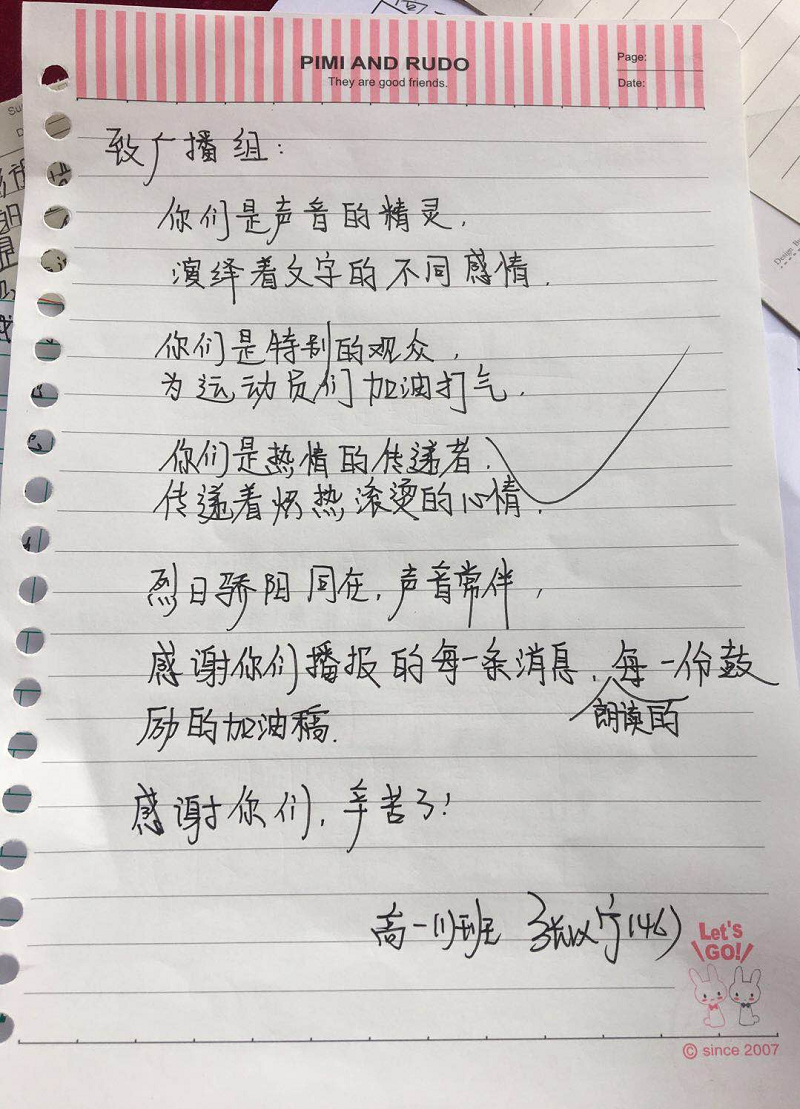 PIMI AND RUDO
They are good friends.
Page:
Date:
致广播组:
你们是声音的精灵,
演绎着文字的不同感情.
你们是特别的观众,
为运动员们加油打气.
你们是热情的传递者,
传递着炽热滚烫的心情.
烈日骄阳同在,声音常伴,
感谢你们播报的每一条消息,每一份鼓
朗读的
励的加油稿.
感谢你们,辛苦了!
高一(1)班 张以宁(46)
Let's
GO!
© since 2007